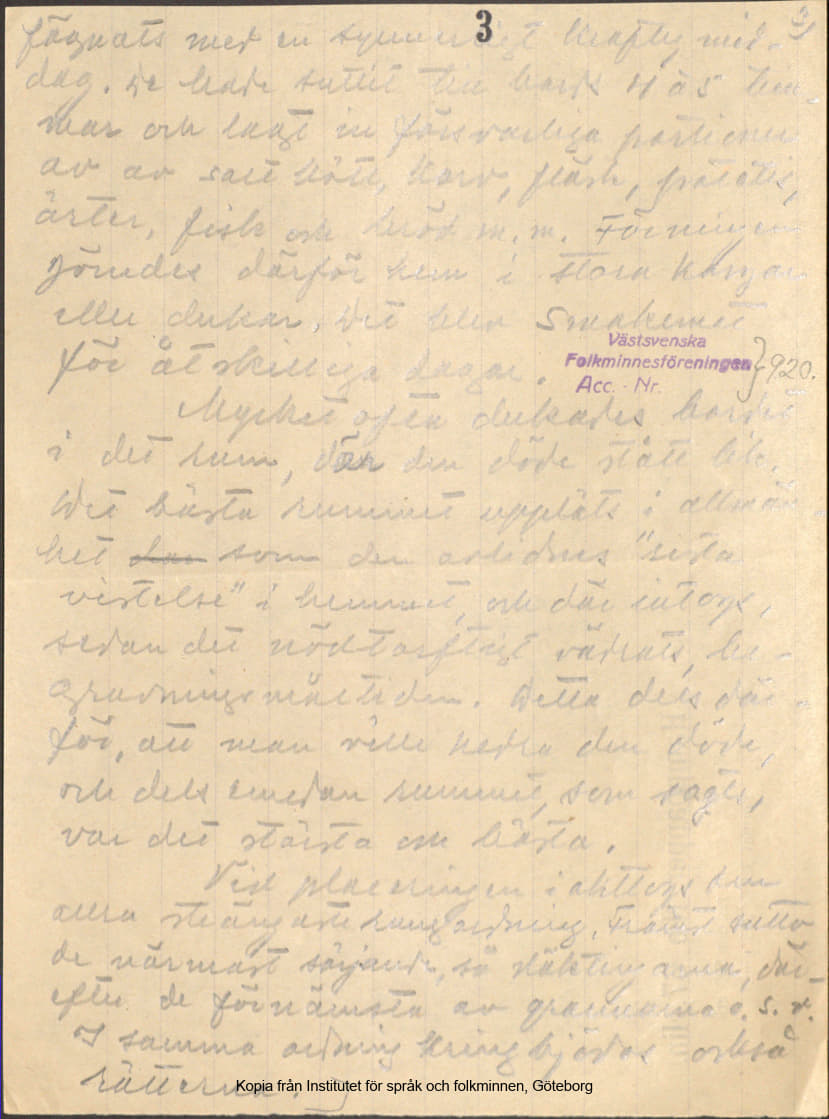 3
fägnats med en synnerligt kraftig mid-
dag. De hade suttit till bords 4 à 5 tim-
mar och lagt in försvarliga portioner
av av salt kött, korv, fläsk, potatis,
ärter, fisk och bröd m. m. Förningen
gömdes därför hem i stora korgar
eller dukar. Det blev
för åtskilliga dagar.
Västsvenska
Folkminnesföreningen } 920.
Acc. - Nr.
Mycket ofta dukades bordet
i det rum, där den döde stått lik.
Det bästa rummet uppläts i allmän-
het som den avlidnes "sista
vistelse" i hemmet, och där intogs,
sedan det nödtorftigt vädrats, be-
gravningsmåltiden. Detta dels där-
för, att man ville hedra den döde,
och dels emedan rummet, som sagts,
var det största och bästa.
Vid placeringen iakttogs den
allra strängaste rangordning. Främst sutto
de närmast sörjande, så släktingarna, där-
efter de förnämsta av grannarna o. s. v.
I samma ordning kringbjödos också
rätterna.
Kopia från Institutet för språk och folkminnen, Göteborg